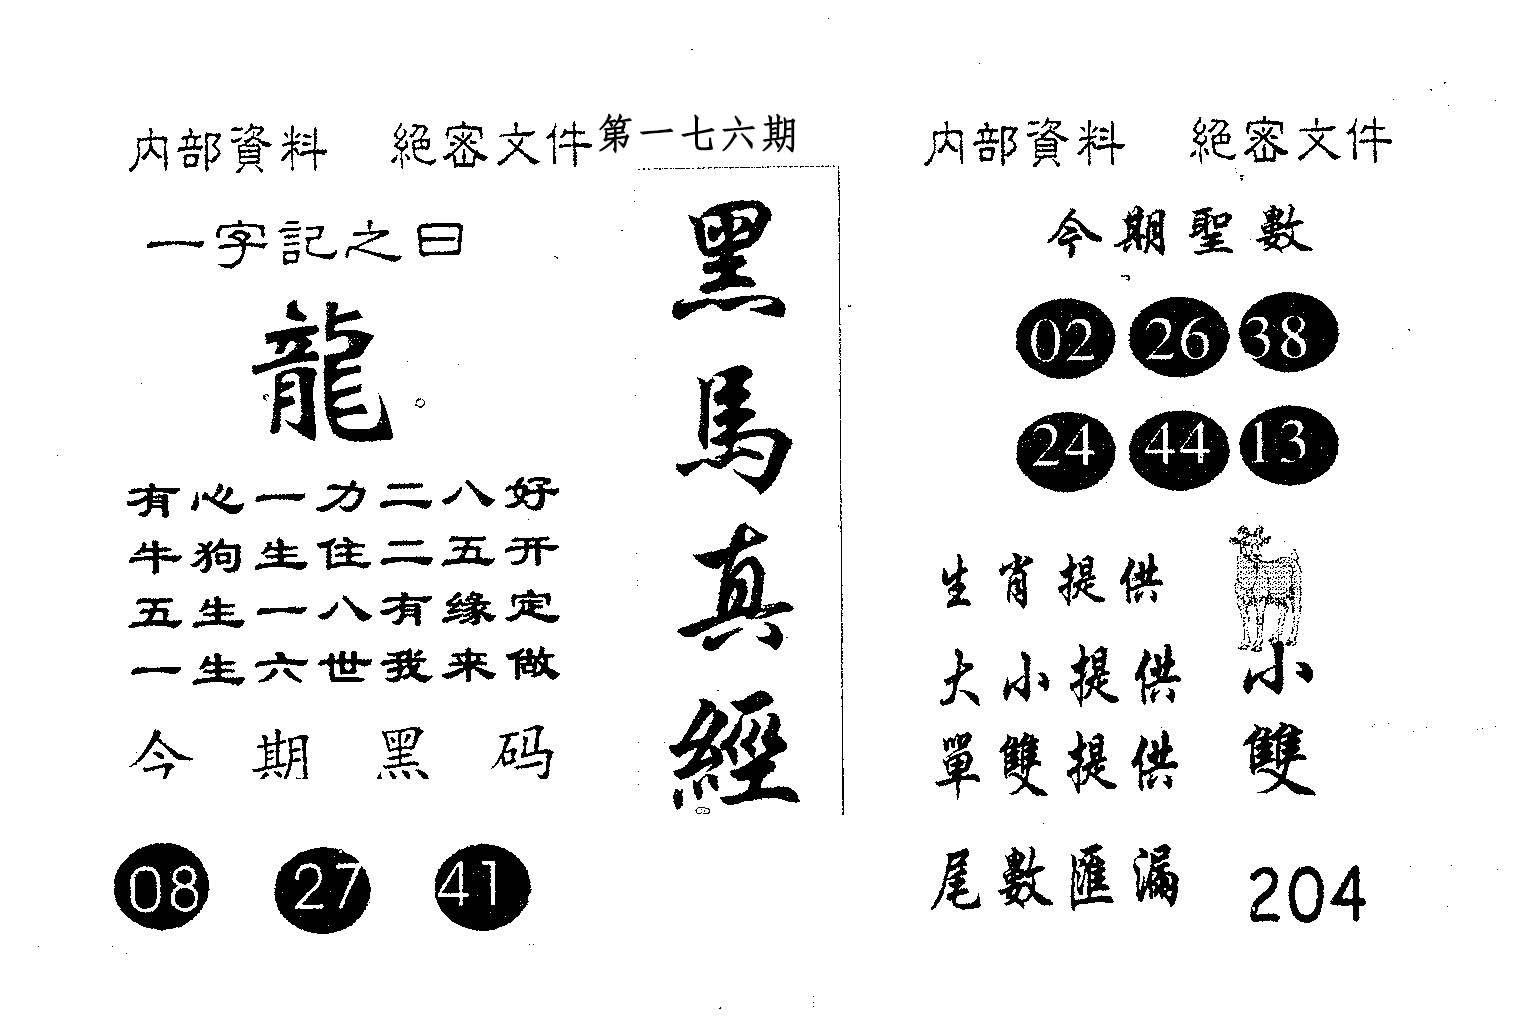 内部資料 絕密文件
一字記之曰
龍
有心一力二八好
牛狗生住二五开
五生一八有缘定
一生六世我来做
今期黑码
08 27 41
第一七六期
黑馬真經
内部資料 絕密文件
今期聖數
02 26 38
24 44 13
生肖提供
大小提供 小
單雙提供 雙
尾數匯漏 204